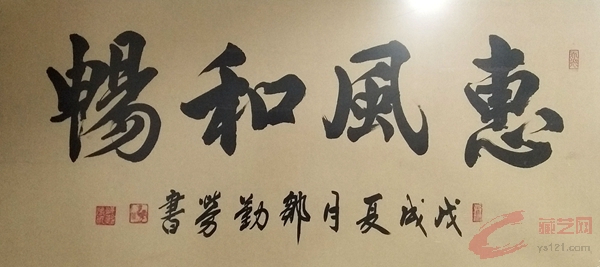 惠風和暢
戊戌夏月鄒勤勞書
藏艺网
ys121.com